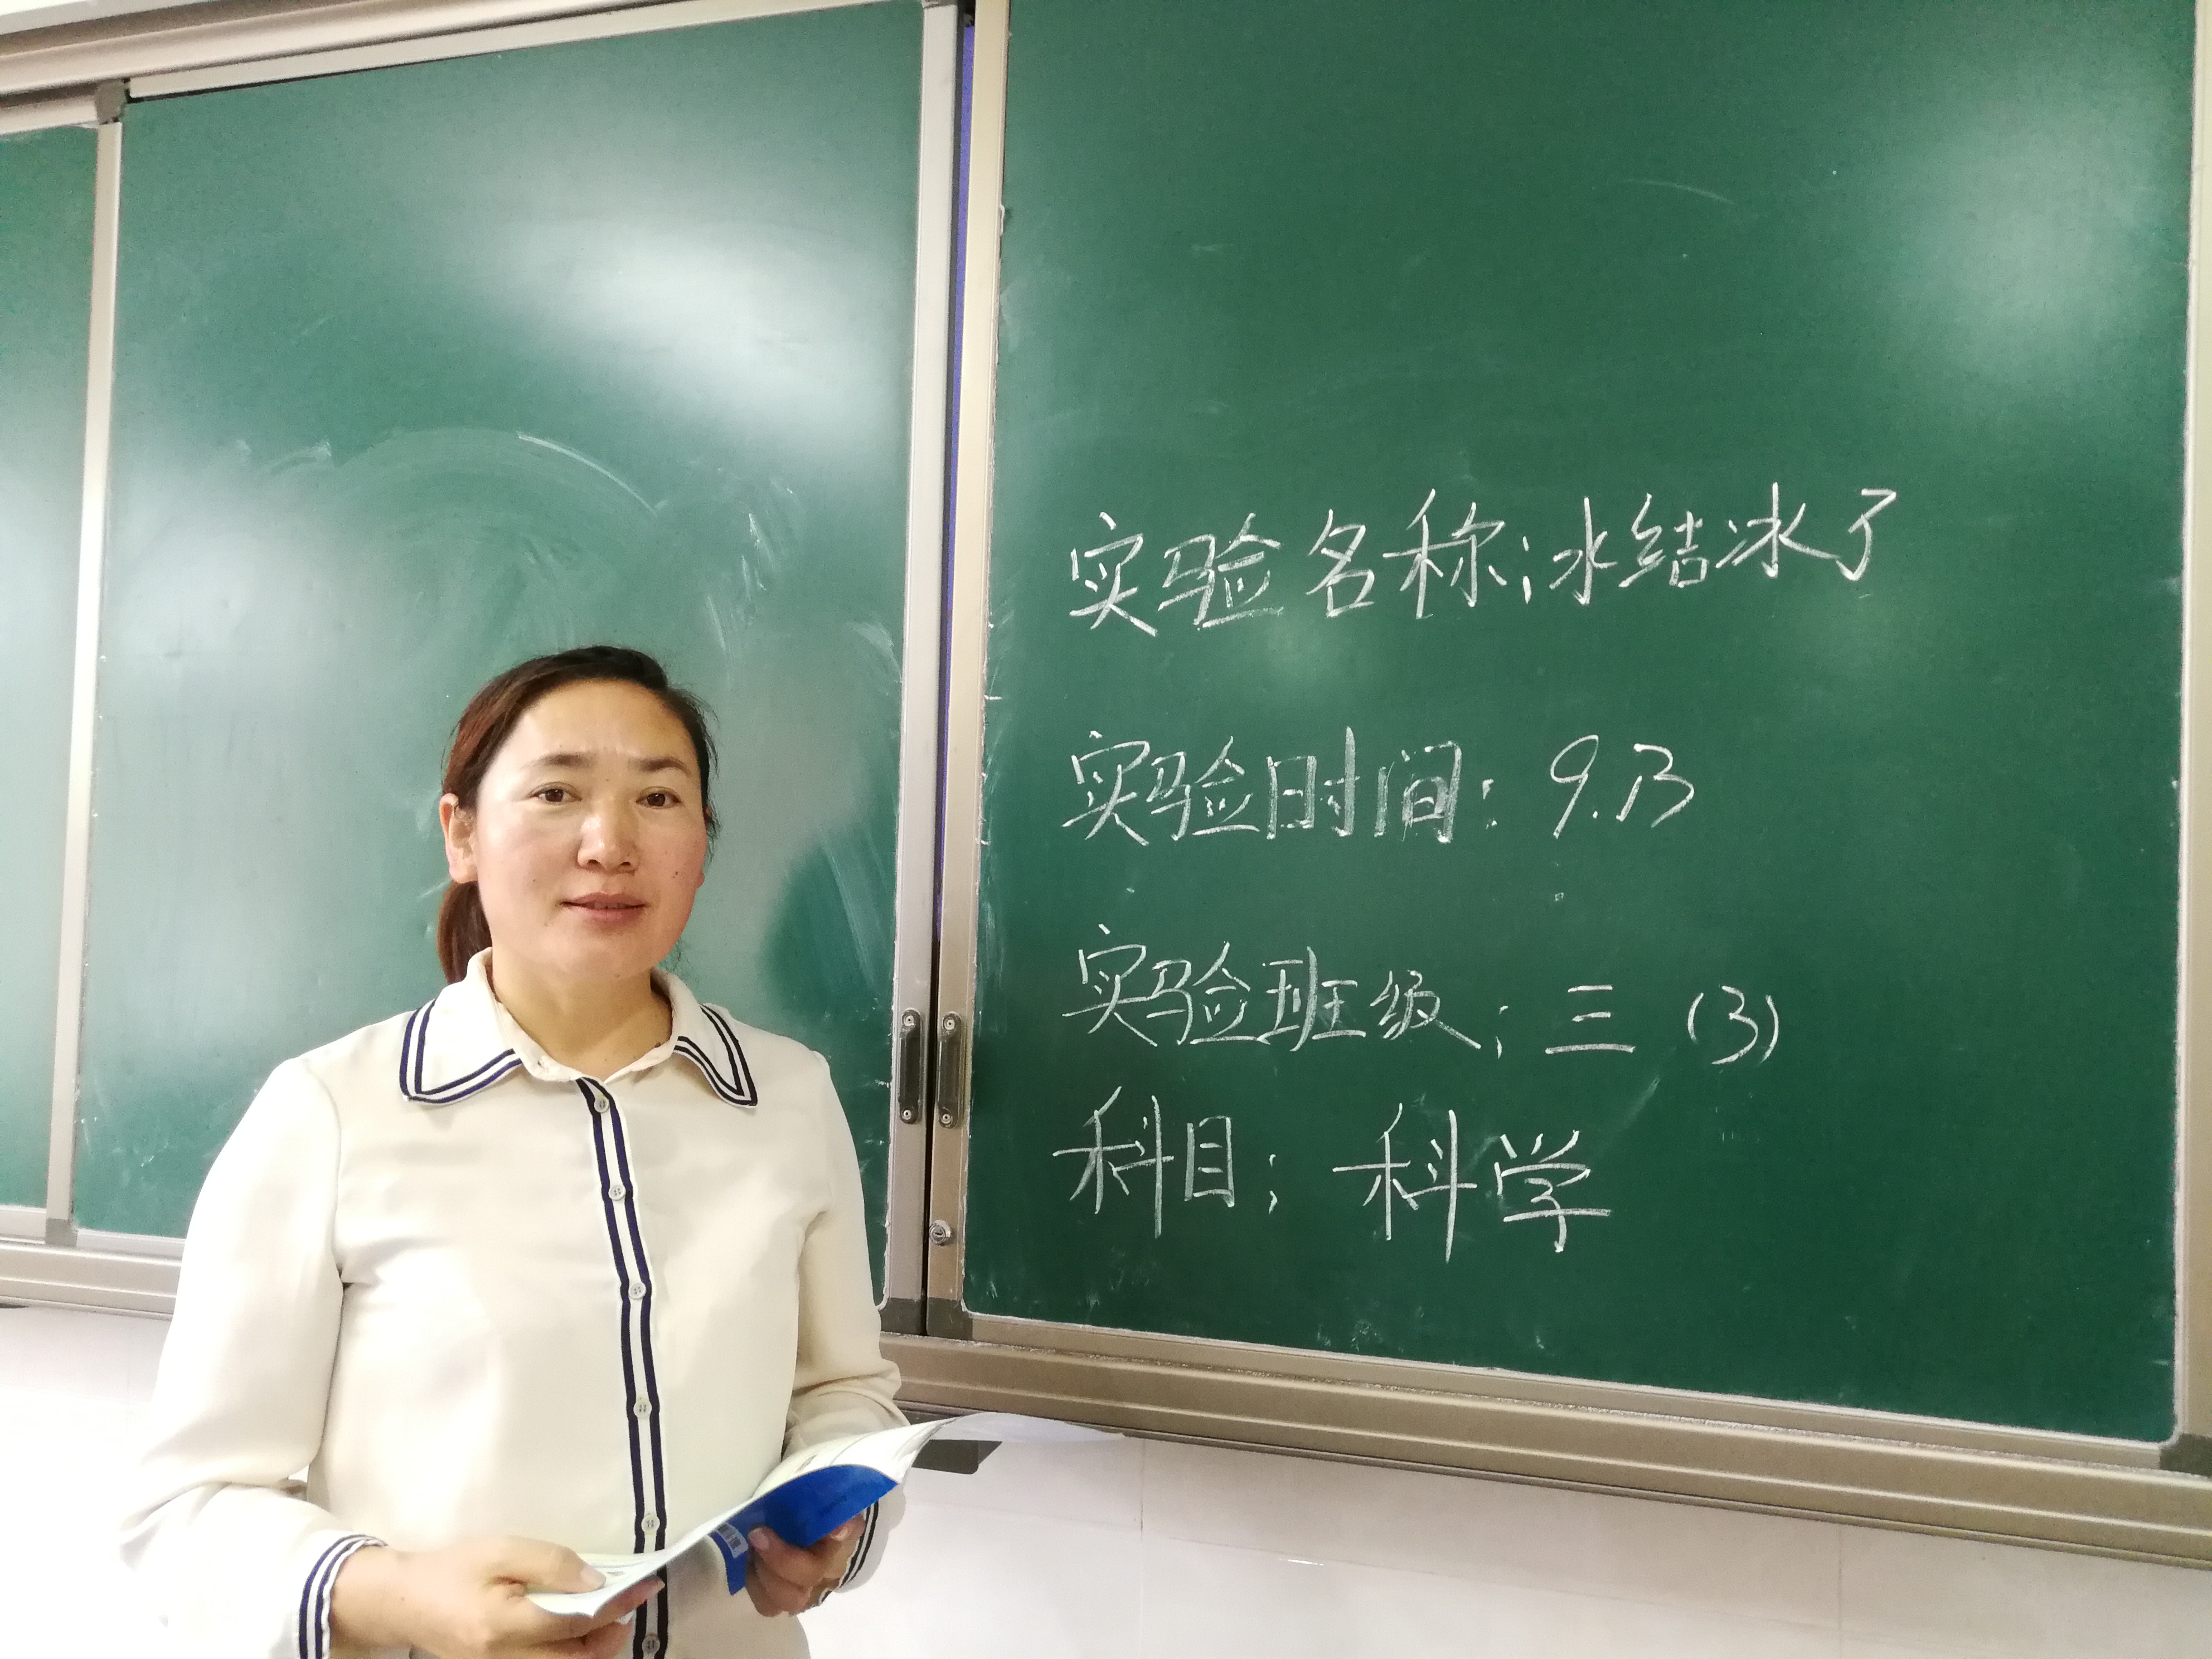 实验名称:水结冰了
实验时间:9.13
实验班级;三(3)
科目;科学